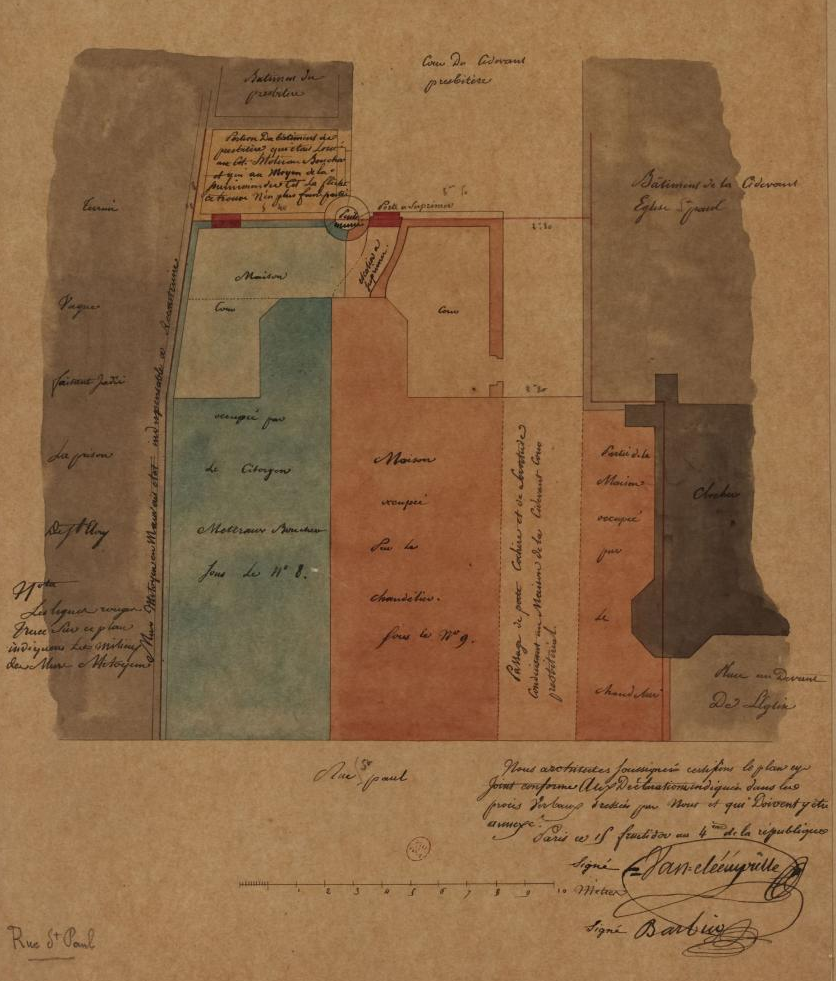 Bâtiment du
presbitère
Cour Du Cidevant
presbitère
Portion Du bâtiment du
presbitère qui étais
au Cit. Motteau Boucher
et qui au Moyen de la
Terrein
Vague
faisant Jadis
La prison
De St Eloy
Mur Mitoyen en Mauvais état indispensable a
Porte a Suprimer
Maison
Cour
Cour
Bâtiment de la Cidevant
Eglise St paul
occupée par
Le Citoyen
Motteaux Boucher
sous le N° 8.
Maison
occupée
Par le
chandelier.
sous le N° 9.
Passage de porte Cochere et de Servitude
Conduisant au Maison de la Cidevant Cour
presbitérial
Partie de la
Maison
occupée
par
Le
chandelier
Clocher
Place au Devant
De L'Eglise
Nota
Les lignes rouges
Tracé Sur ce plan
indiquent Les Milieux
des Murs Mitoyens
Rue St paul
Nous architectes soussignés certifions le plan cy
Joint conforme Aux Déclarations indiquées dans les
procès Verbaux dressés par Nous et qui Doivent y être
annexé.
Paris ce 15 fructidor an 4me de la république
Signé
1 2 3 4 5 6 7 8 9 10 Metres
Signé Barbier
Rue St Paul